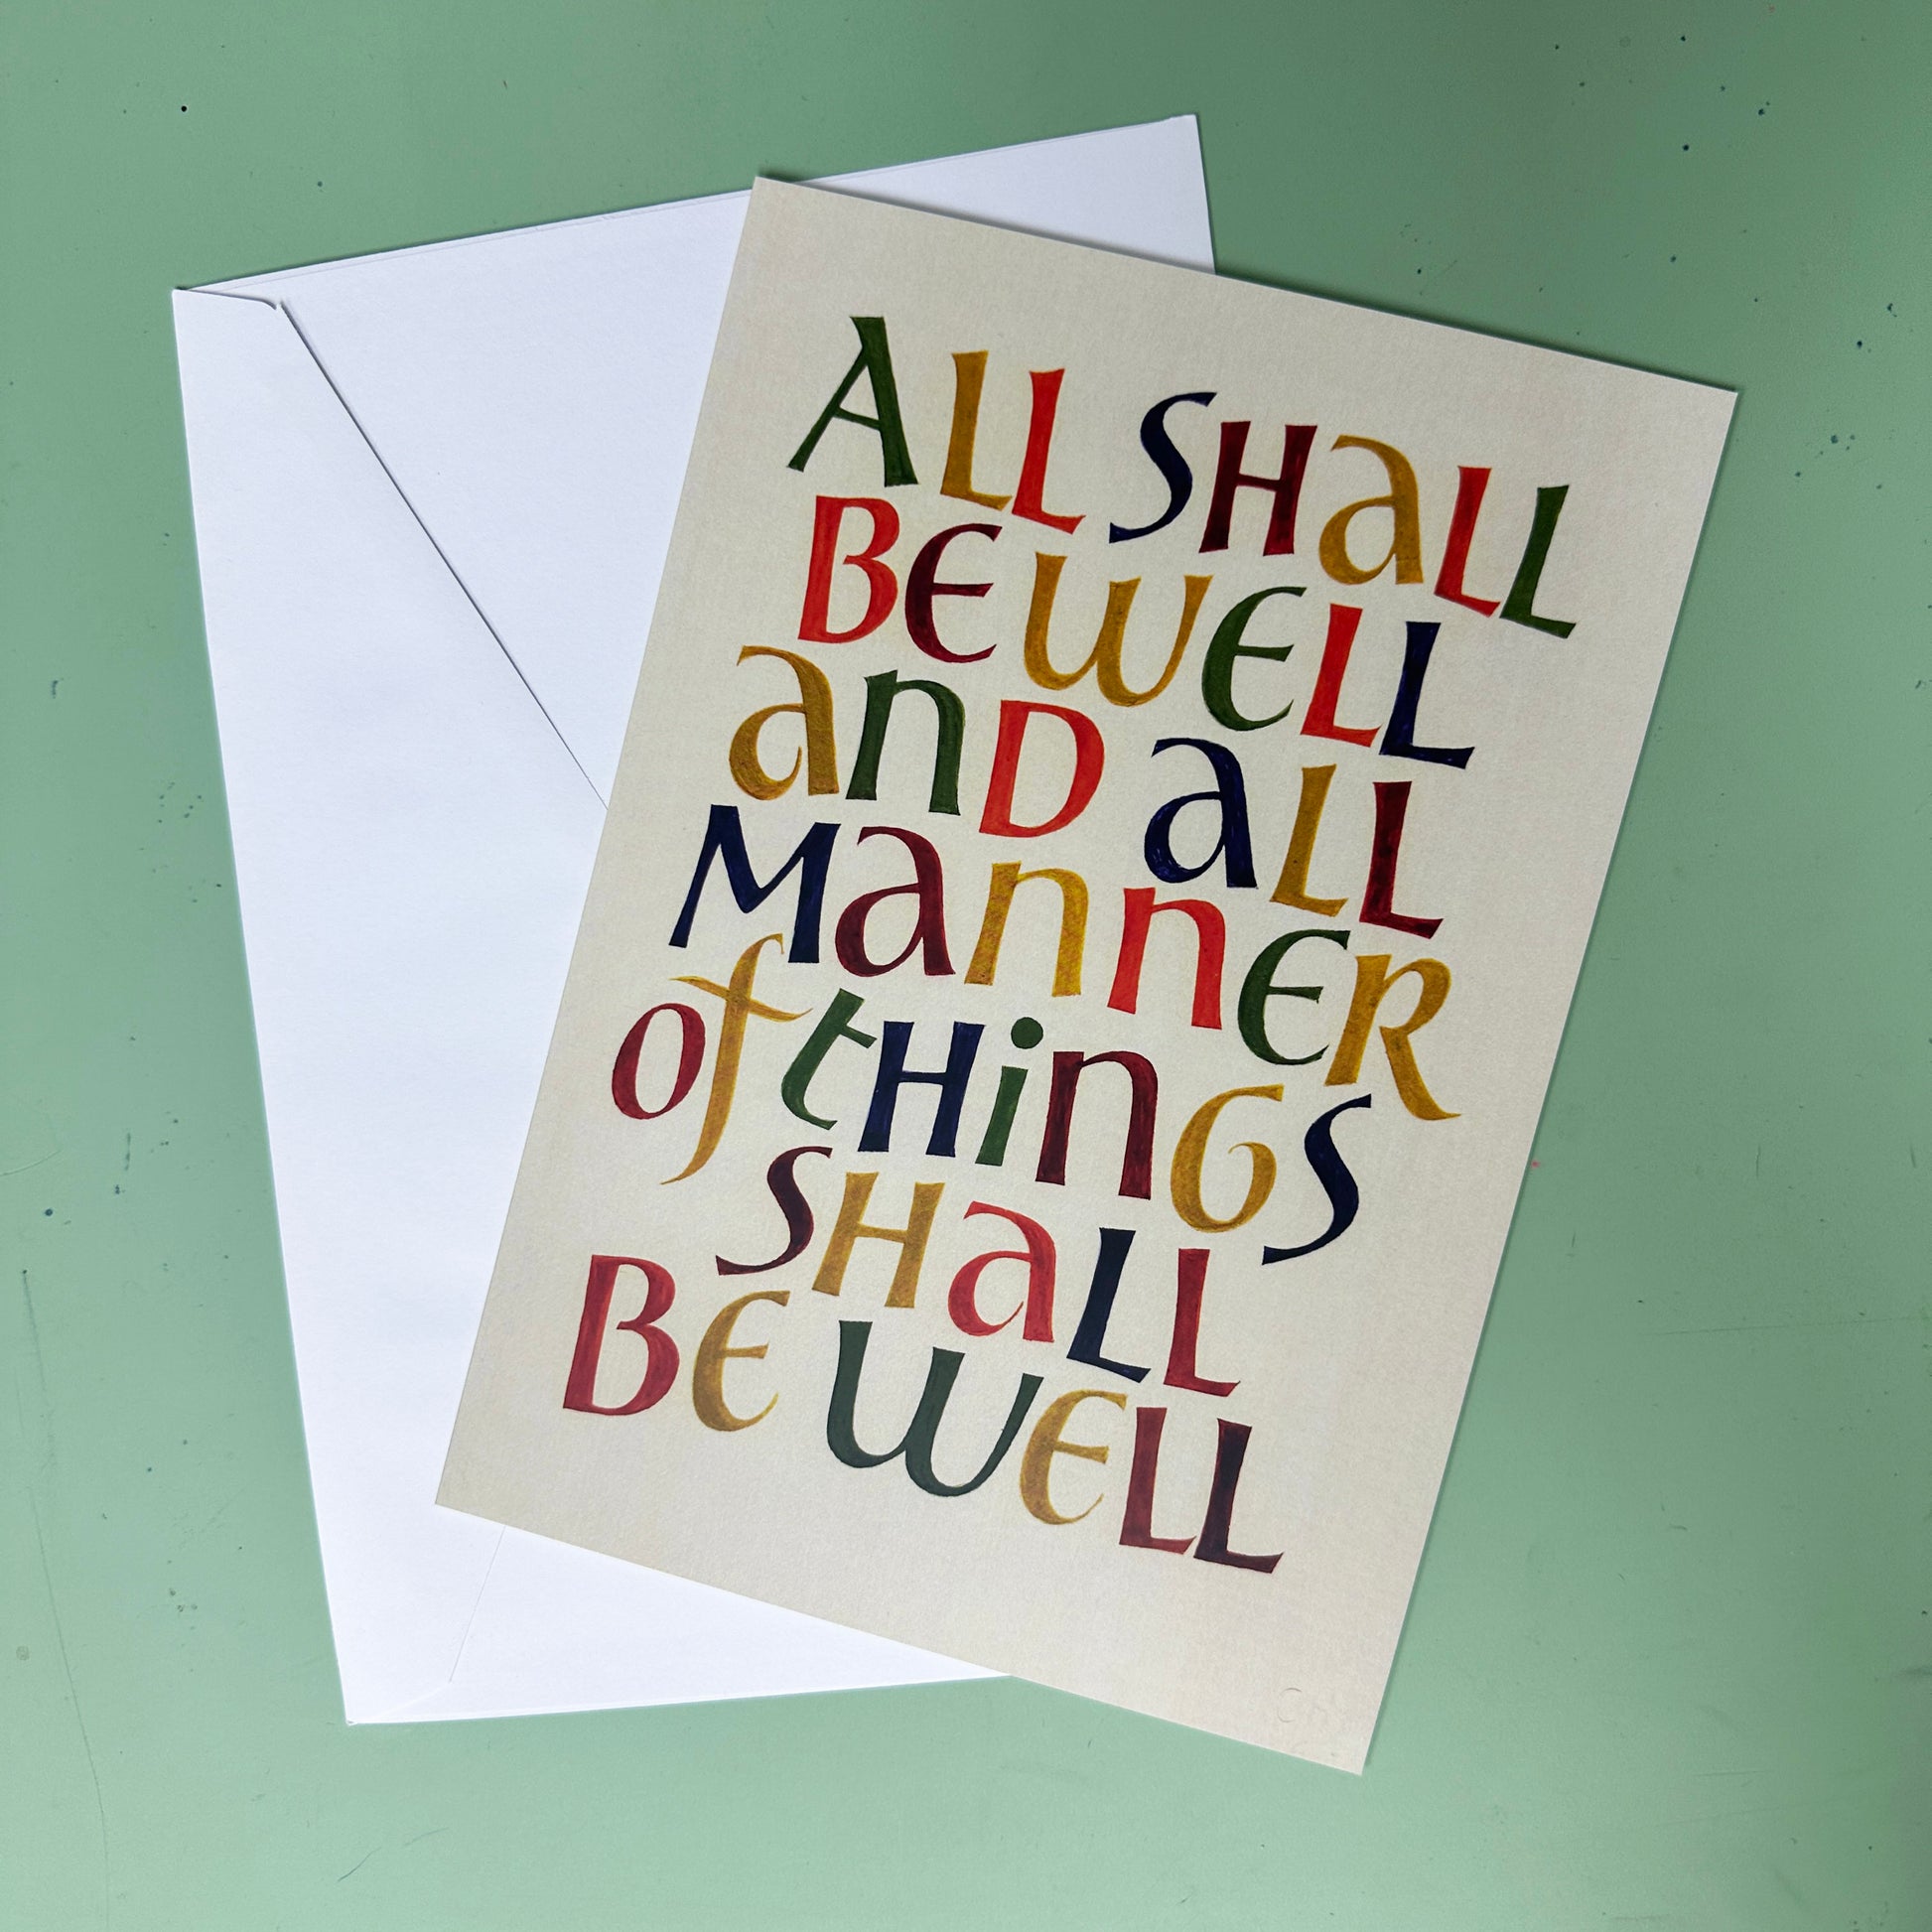 ALL SHaLL
BE WELL
anD aLL
MannER
of tHinGS
SHaLL
BE WELL